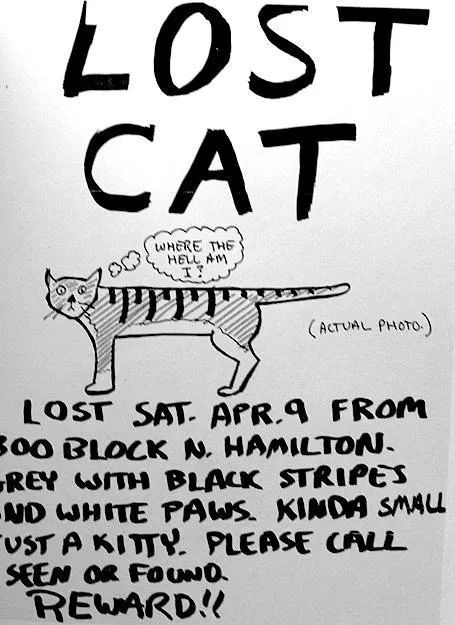 LOST
CAT
WHERE THE
HELL AM
I?
(ACTUAL PHOTO.)
LOST SAT. APR. 9 FROM
BLOCK N. HAMILTON.
GREY WITH BLACK STRIPES
ND WHITE PAWS. KINDA SMALL
UST A KITTY. PLEASE CALL
SEEN OR FOUND.
REWARD!!